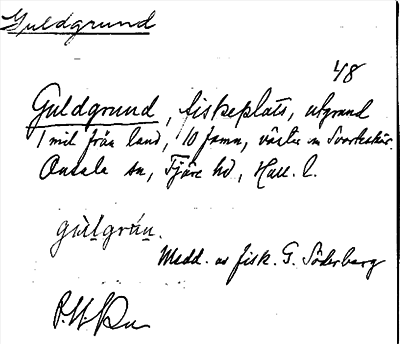 Guldgrund
48
Guldgrund, fiskeplats, utgrund
1 mil från land, 10 famn, väster om Svartskär.
Onsala sn, Fjäre hd, Hall. l.
gulgrun.
Medd. av fisk. G. Söderberg